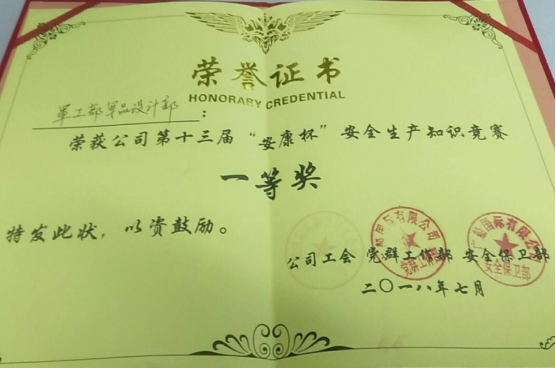 荣誉证书
HONORARY CREDENTIAL
军工部军品设计部:
荣获公司第十三届“安康杯”安全生产知识竞赛
一等奖
特发此状,以资鼓励。
公司工会 党群工作部 安全保卫部
二〇一八年七月
有限公司
党群工作部
国际有限公司
安全保卫部